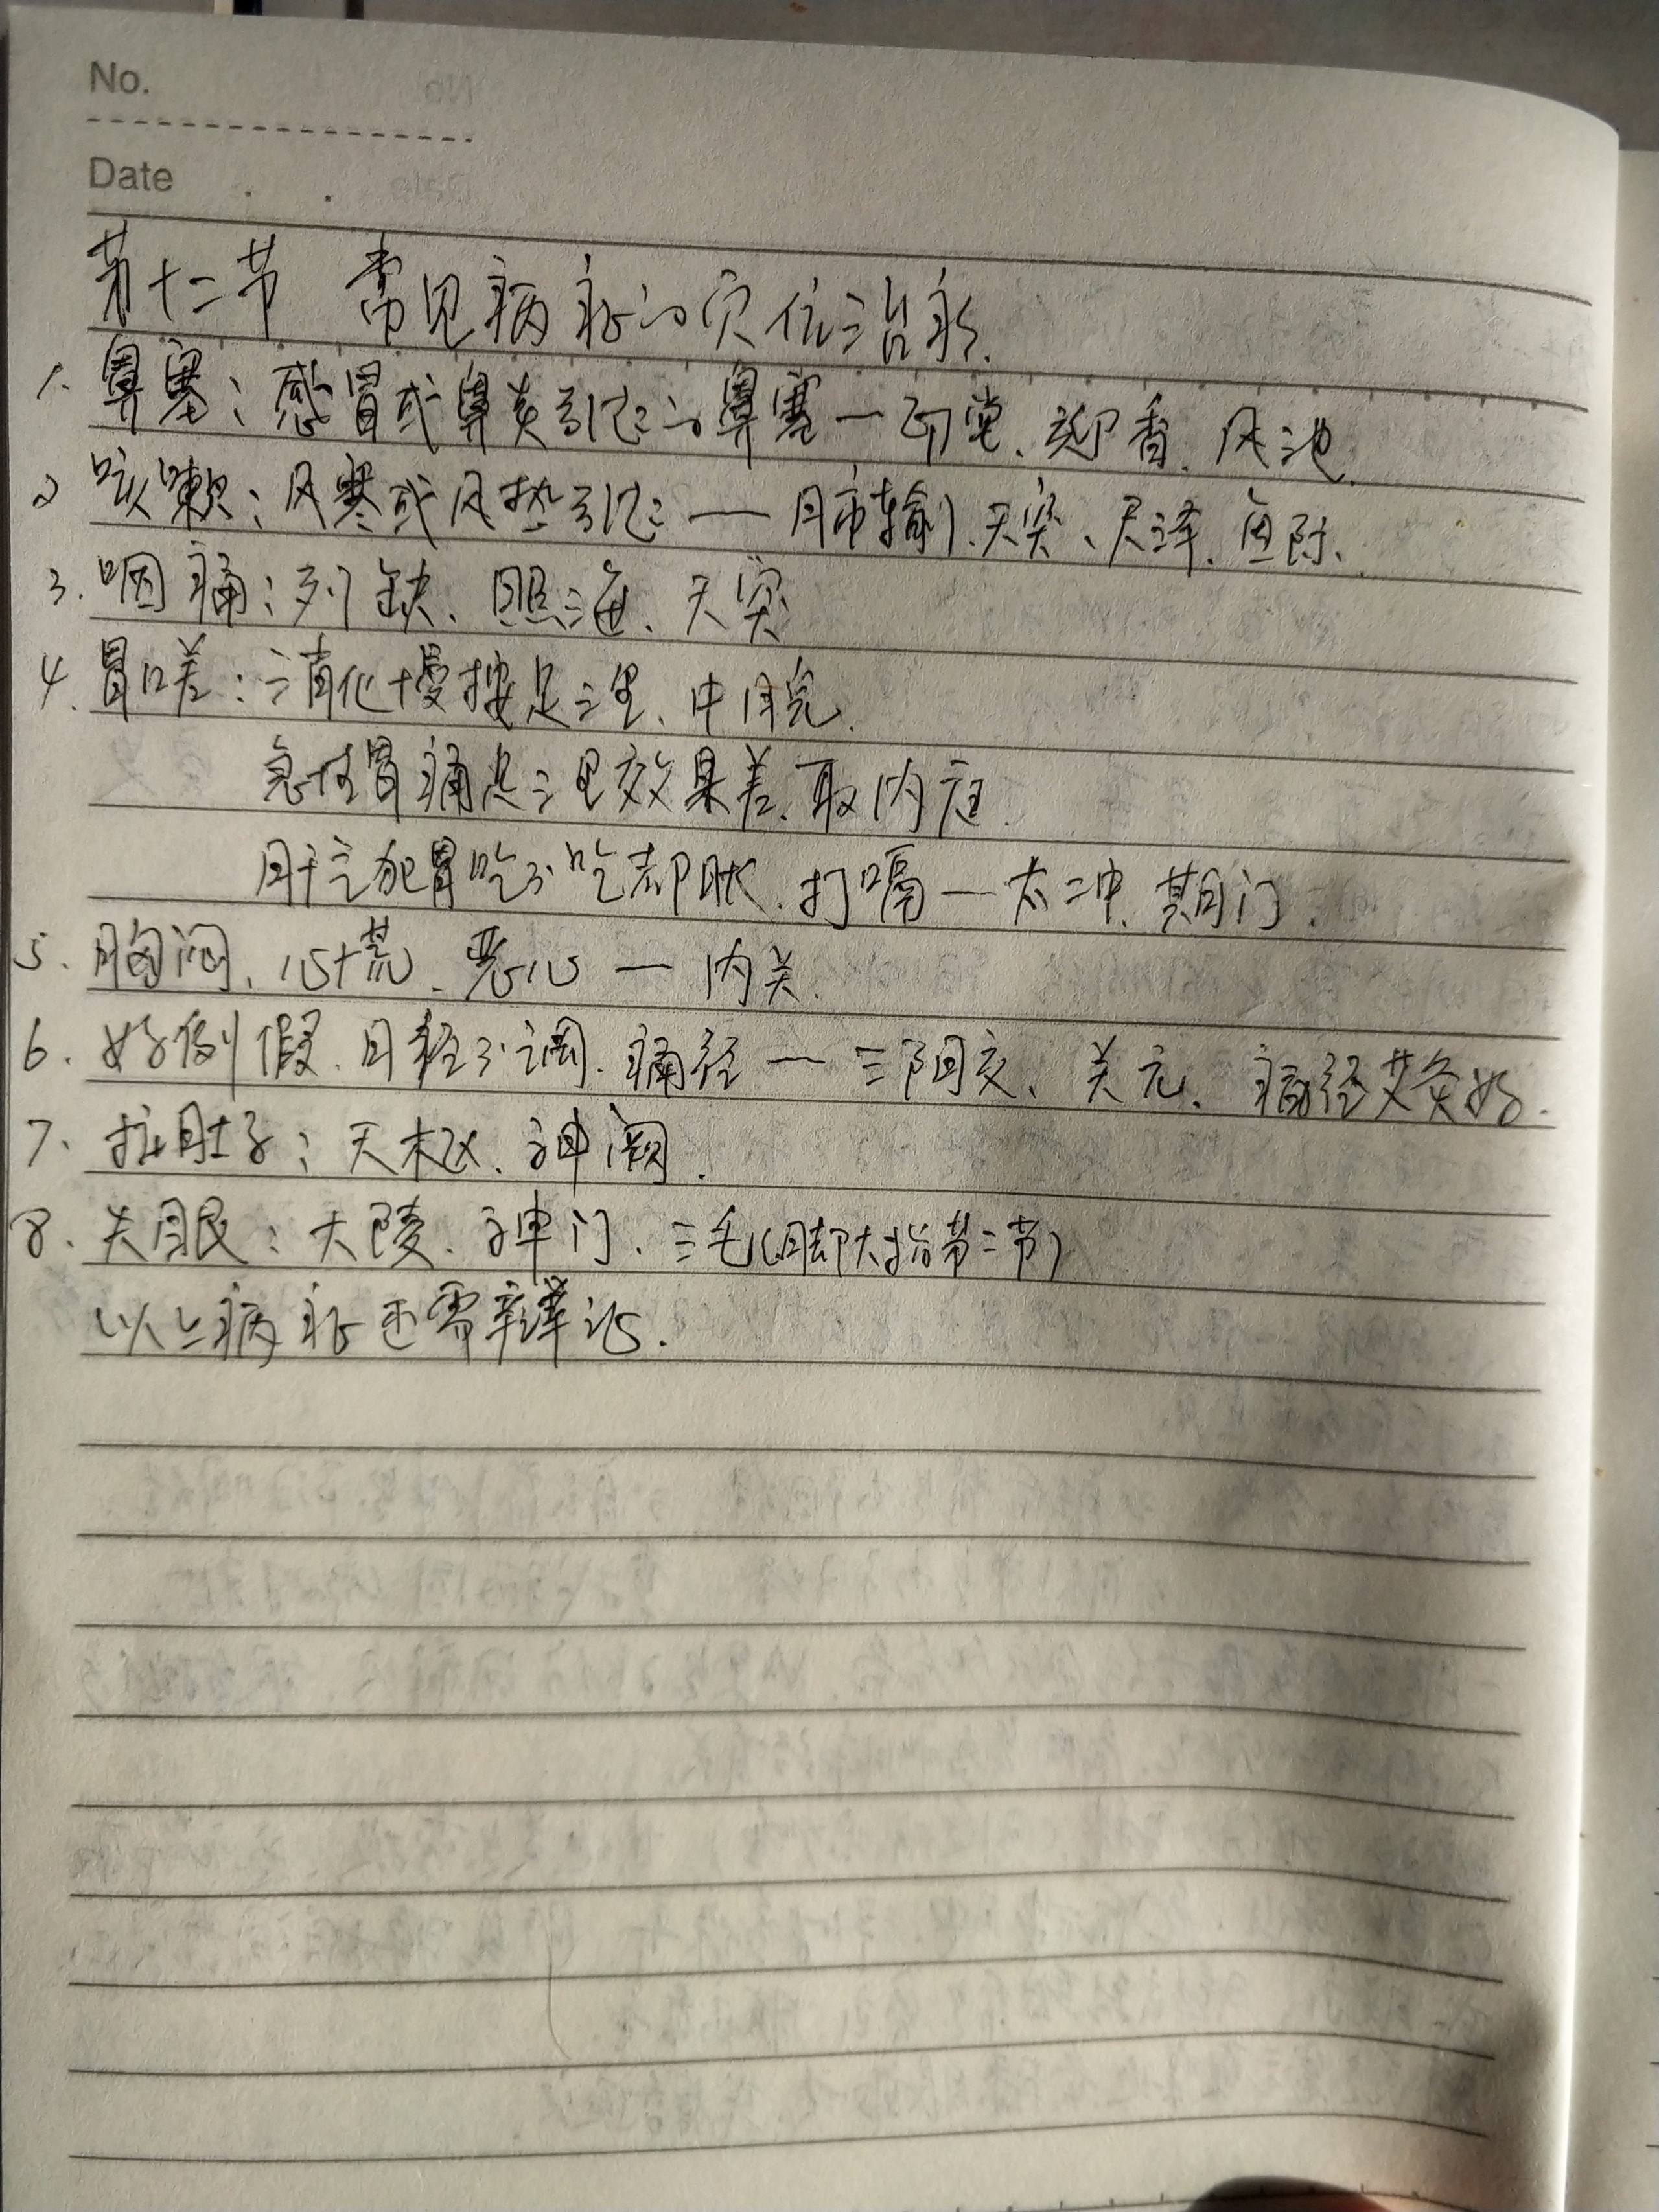 No.
Date
第十二节 常见病症的穴位治疗.
1. 鼻塞：感冒或鼻炎引起的鼻塞一印堂、迎香、风池.
2 咳嗽：风寒或风热引起 — 肺输、天突、尺泽、鱼际、
3. 咽痛：列缺、照海、天突
4. 胃口差：消化慢按足三里、中脘.
急性胃痛足三里效果差、取内庭.
肝气犯胃吃不吃都胀、打嗝一太冲、期门.
5. 胸闷、心慌、恶心 一 内关.
6. 好例假、月经不调、痛经 一 三阴交、关元、痛经艾灸好.
7、拉肚子：天枢、神阙.
8. 失眠：大陵、神门、三毛(脚大指第二节)
以上病症还需辩证.